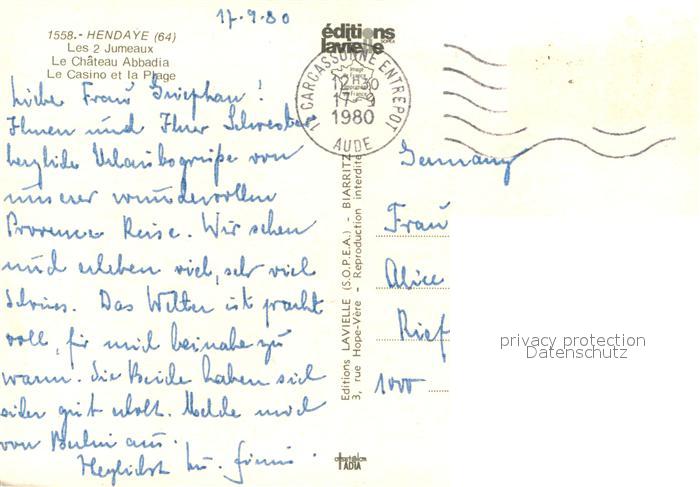 17.9.80
1558.- HENDAYE (64)
Les 2 Jumeaux
Le Château Abbadia
Le Casino et la Plage
éditions
lavielle
11 CARCASSONNE ENTREPOT
12-30
17-9
1980
AUDE
Liebe Frau !
Ihnen und Ihrer Schwester
herzliche Urlaubsgrüße von
unserer wundervollen
Provence Reise. Wir sehen
und erleben viel, sehr viel
Schönes. Das Wetter ist pracht
voll, für mich beinahe zu
warm. Die Beide haben sich
gut erholt. Melde mich
von Berlin aus.
Herzlichst Ihr
Editions LAVIELLE (S.O.P.E.A.) - BIARRITZ
3, rue Hope-Vère - Reproduction interdite
Germany
Frau
Alice
Rief
1000
privacy protection
Datenschutz